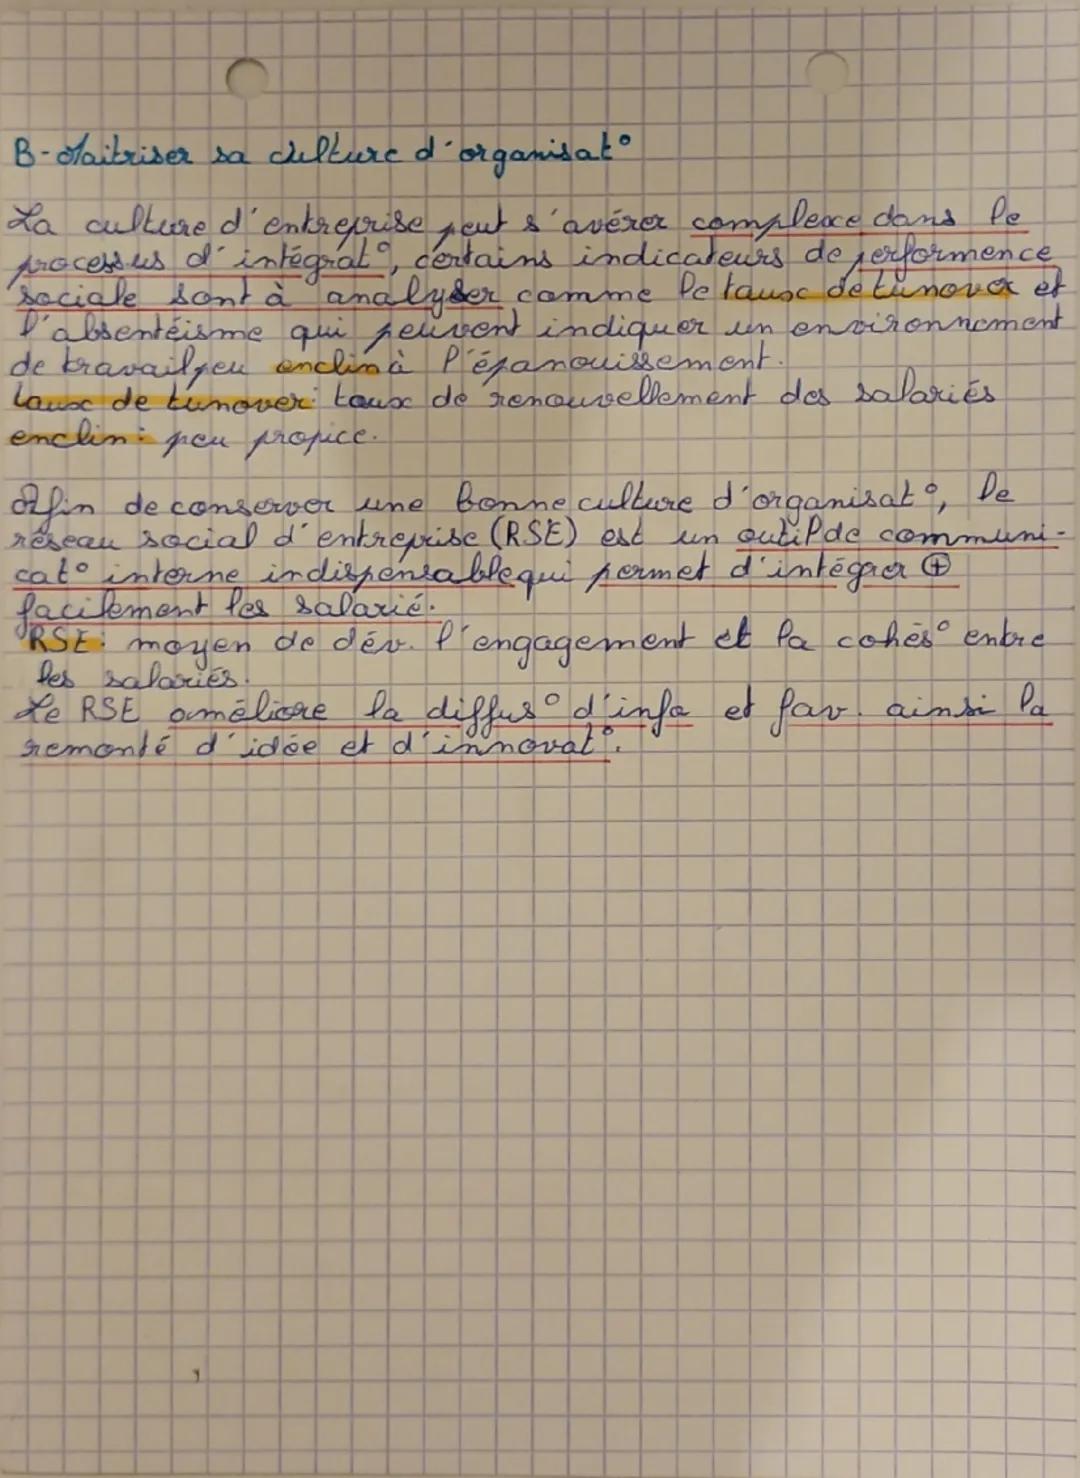 B- Maitriser sa culture d'organisat°
La culture d'entreprise peut s'avérer complexe dans le
processus d'intégrat°, certains indicateurs de performence
sociale sont à analyser comme le taux de turnover et
l'absentéisme qui peuvent indiquer un environnement
de travail peu enclin à l'épanouissement.
taux de turnover: taux de renouvellement des salariés
enclin: peu propice.
Afin de conserver une bonne culture d'organisat°, le
réseau social d'entreprise (RSE) est un outil de communi-
cat° interne indispensable qui permet d'intégrer ⊕
facilement les salarié.
RSE: moyen de dév. l'engagement et la cohés° entre
les salariés.
Le RSE améliore la diffus° d'info et fav. ainsi la
remonté d'idée et d'innovat°.